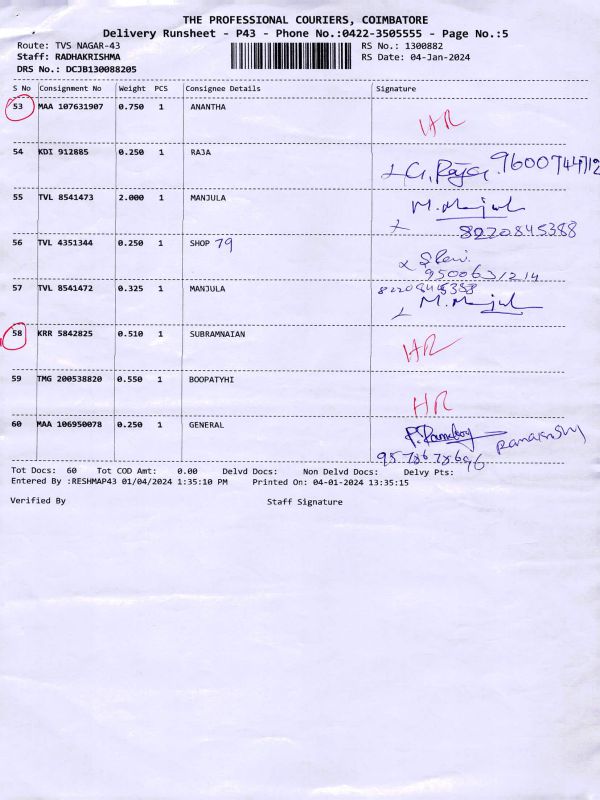 THE PROFESSIONAL COURIERS, COIMBATORE
Delivery Runsheet - P43 - Phone No.:0422-3505555 - Page No.:5
Route: TVS NAGAR-43 RS No.: 1300882
Staff: RADHAKRISHMA RS Date: 04-Jan-2024
DRS No.: DCJB130088205
S No Consignment No Weight PCS Consignee Details Signature
53 MAA 107631907 0.750 1 ANANTHA HR
54 KDI 912885 0.250 1 RAJA G. Raja. 9600744712
55 TVL 8541473 2.000 1 MANJULA M. Manjula
8220845388
56 TVL 4351344 0.250 1 SHOP 79
9500631214
57 TVL 8541472 0.325 1 MANJULA 8220845388
M. Manjula
58 KRR 5842825 0.510 1 SUBRAMNAIAN HR
59 TMG 200538820 0.550 1 BOOPATYHI HR
60 MAA 106950078 0.250 1 GENERAL
9578678696
Tot Docs: 60 Tot COD Amt: 0.00 Delvd Docs: Non Delvd Docs: Delvy Pts:
Entered By :RESHMAP43 01/04/2024 1:35:10 PM Printed On: 04-01-2024 13:35:15
Verified By Staff Signature